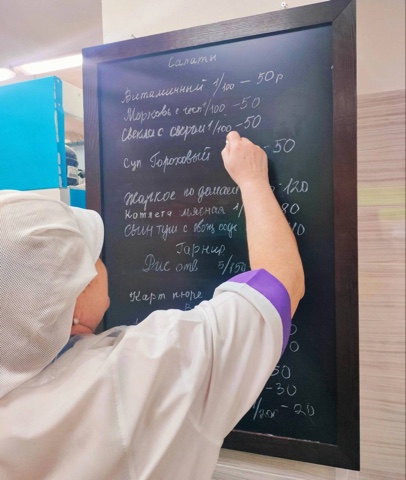 Салаты
Витаминный 1/100 - 50р
Морковь с чесн 1/100 - 50
Свекла с сыром 1/100 - 50
Суп Гороховый - 50
Жаркое по домаш - 120
Котлета мясная 1/ 80
Свин туш с овощ 0
Гарнир
Рис отв 5/150
Карт пюре
0
50
- 30
- 20